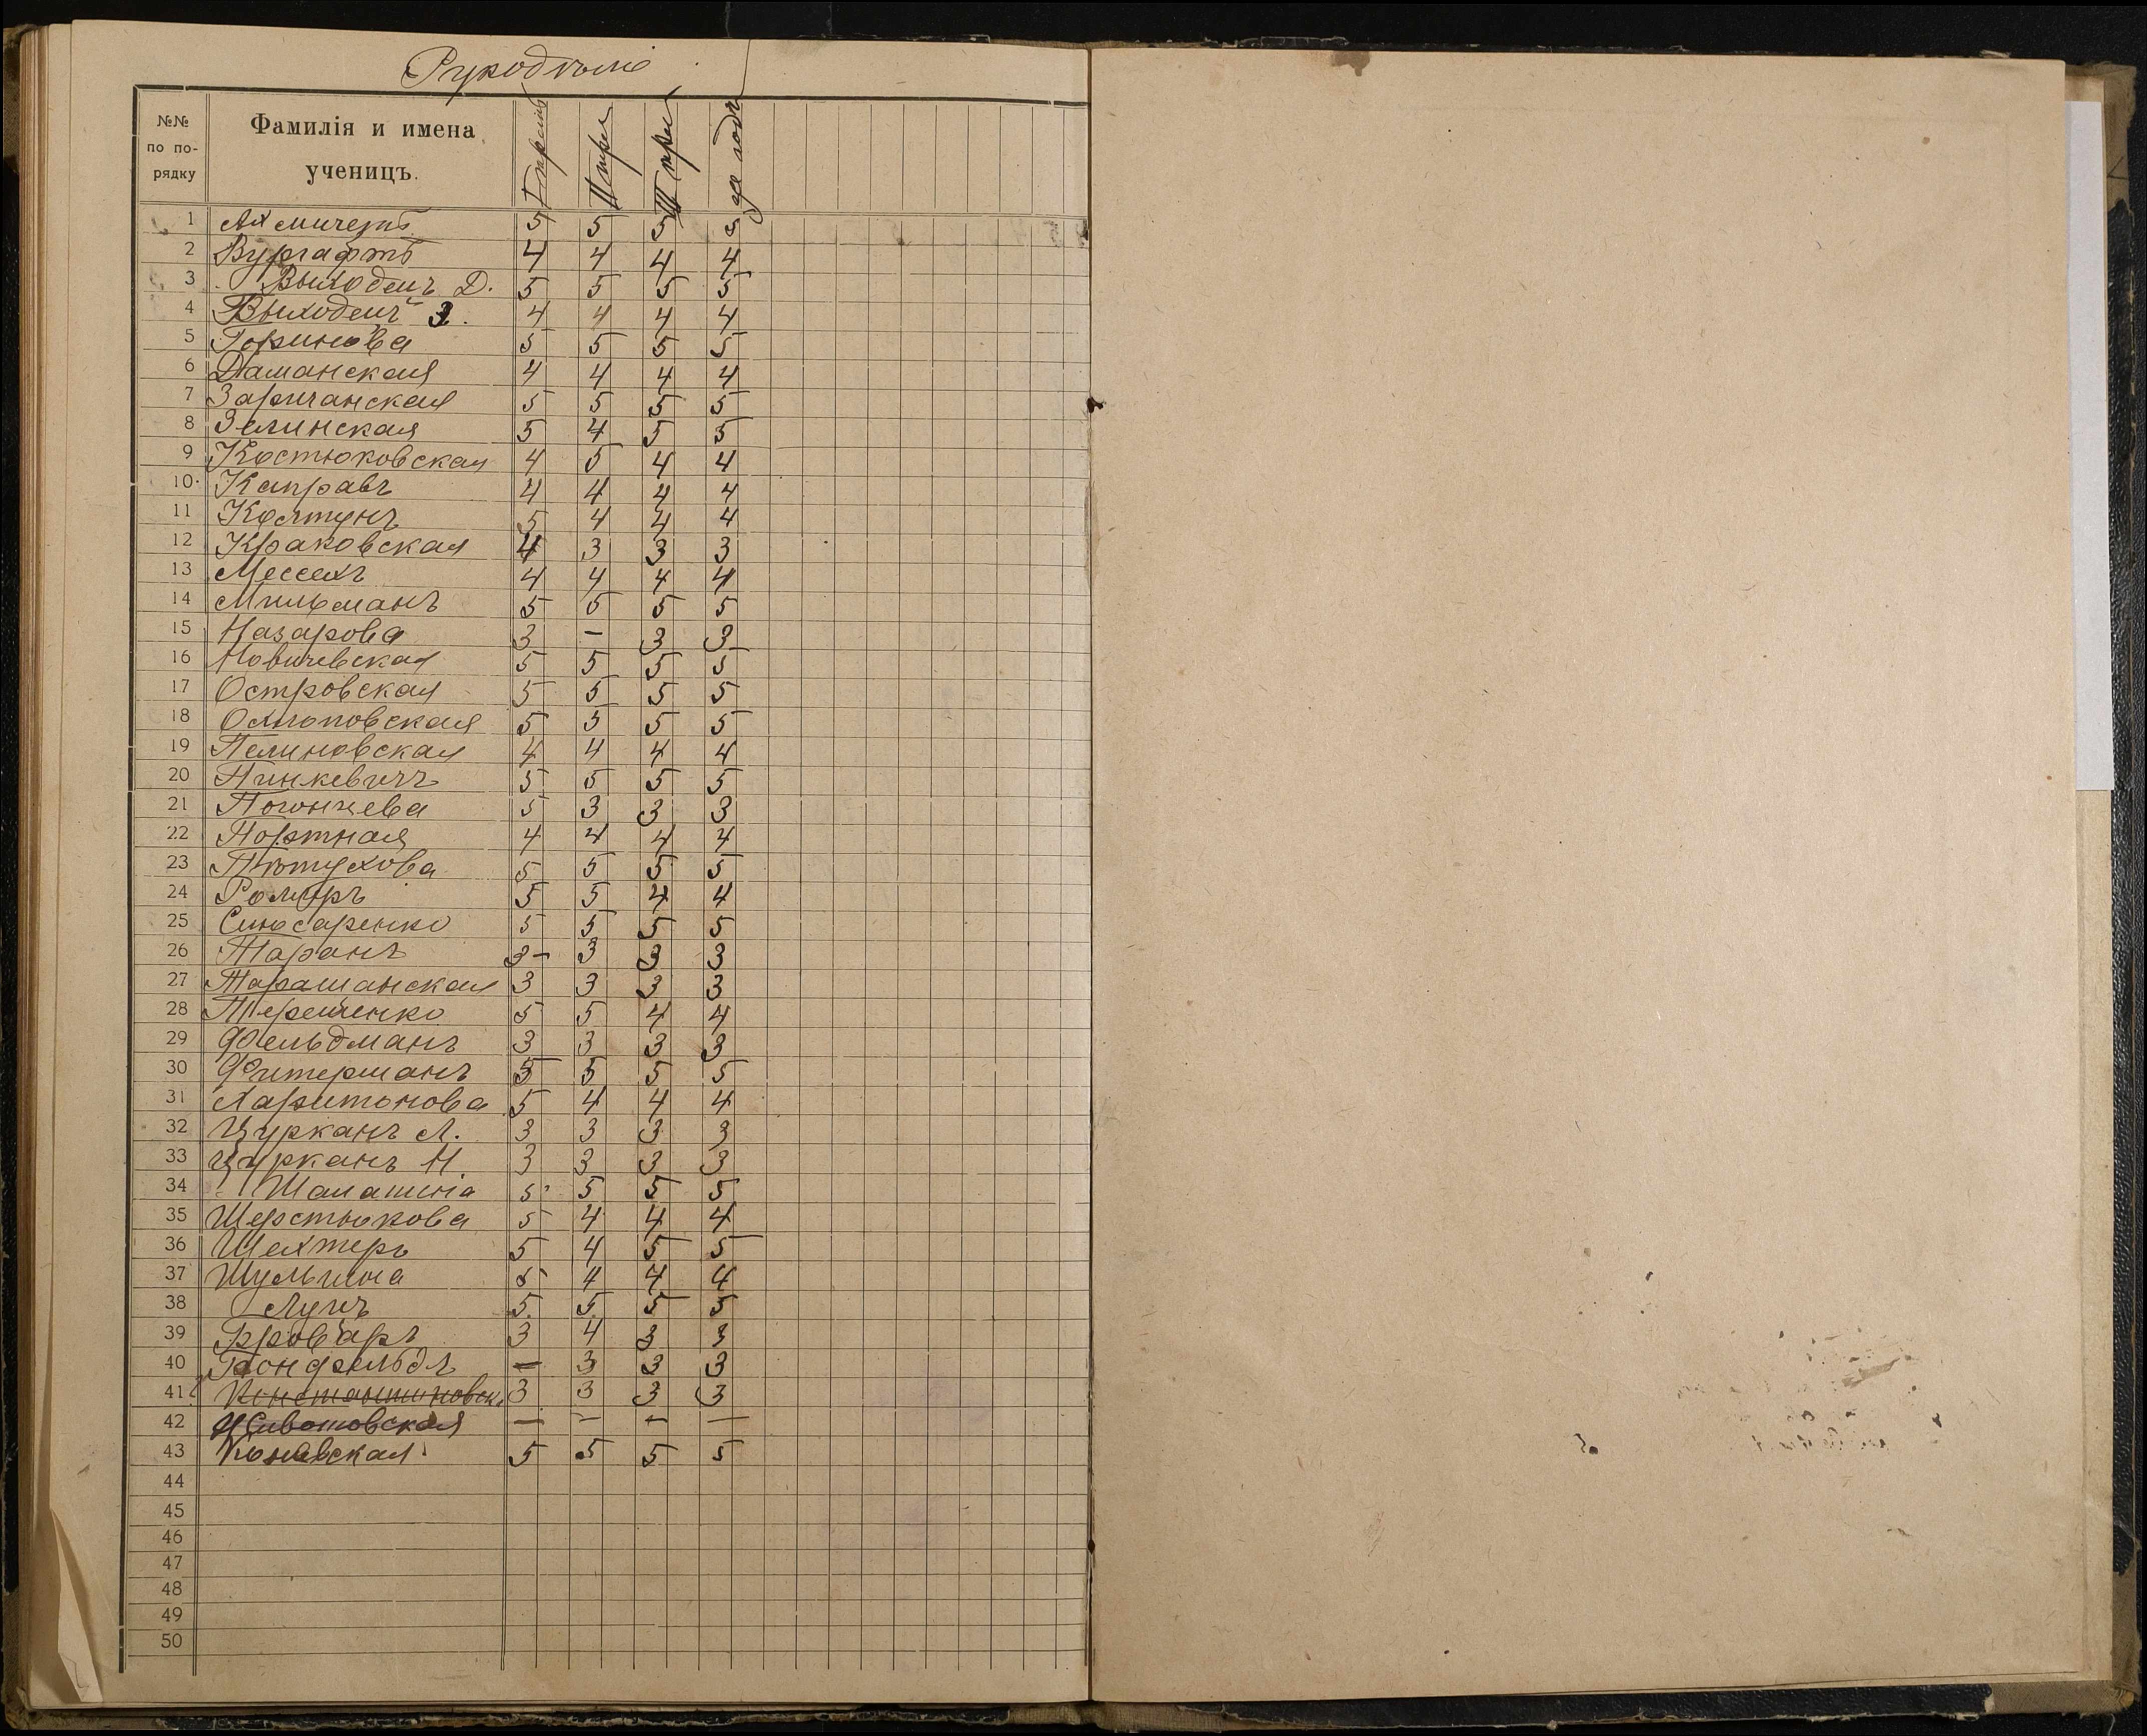 Рукодѣліе
№№ по по-рядку Фамилія и имена ученицъ. I треть II тре III тре за годъ
1 Ахмичетъ 5 5 5 5
2 Вургафтъ 4 4 4 4
3 Выходецъ Д. 5 5 5 5
4 Выходецъ З. 4 4 4 4
5 Горинова 5 5 5 5
6 Даманская 4 4 4 4
7 Заричанская 5 5 5 5
8 Зелинская 5 4 5 5
9 Костюковская 4 5 4 4
10 Каправъ 4 4 4 4
11 Колтунъ 5 4 4 4
12 Краковская 4 3 3 3
13 Мессехъ 4 4 4 4
14 Мильманъ 5 5 5 5
15 Назарова 3 – 3 3
16 Новичевская 5 5 5 5
17 Островская 5 5 5 5
18 Охлоповская 5 5 5 5
19 Пелиновская 4 4 4 4
20 Пинкевичъ 5 5 5 5
21 Погончева 5 3 3 3
22 Портная 4 4 4 4
23 Пѣтухова 5 5 5 5
24 5 5 4 4
25 Слюсаренко 5 5 5 5
26 Таранъ 3- 3 3 3
27 Таращанская 3 3 3 3
28 Терещенко 5 5 4 4
29 Фельдманъ 3 3 3 3
30 Фитерманъ 5 5 5 5
31 Харитонова 5 4 4 4
32 Цурканъ Л. 3 3 3 3
33 Цурканъ Н. 3 3 3 3
34 Шалагина 5 5 5 5
35 Шерстюкова 5 4 4 4
36 Шехтеръ 5 4 5 5
37 Шульгина 5 4 4 4
38 Лунъ 5 5 5 5
39 Броваръ 3 4 3 3
40 Гонфельдъ – 3 3 3
41 Константиновск. 3 3 3 3
42 Животовская – – – –
43 Коневская 5 5 5 5
44
45
46
47
48
49
50